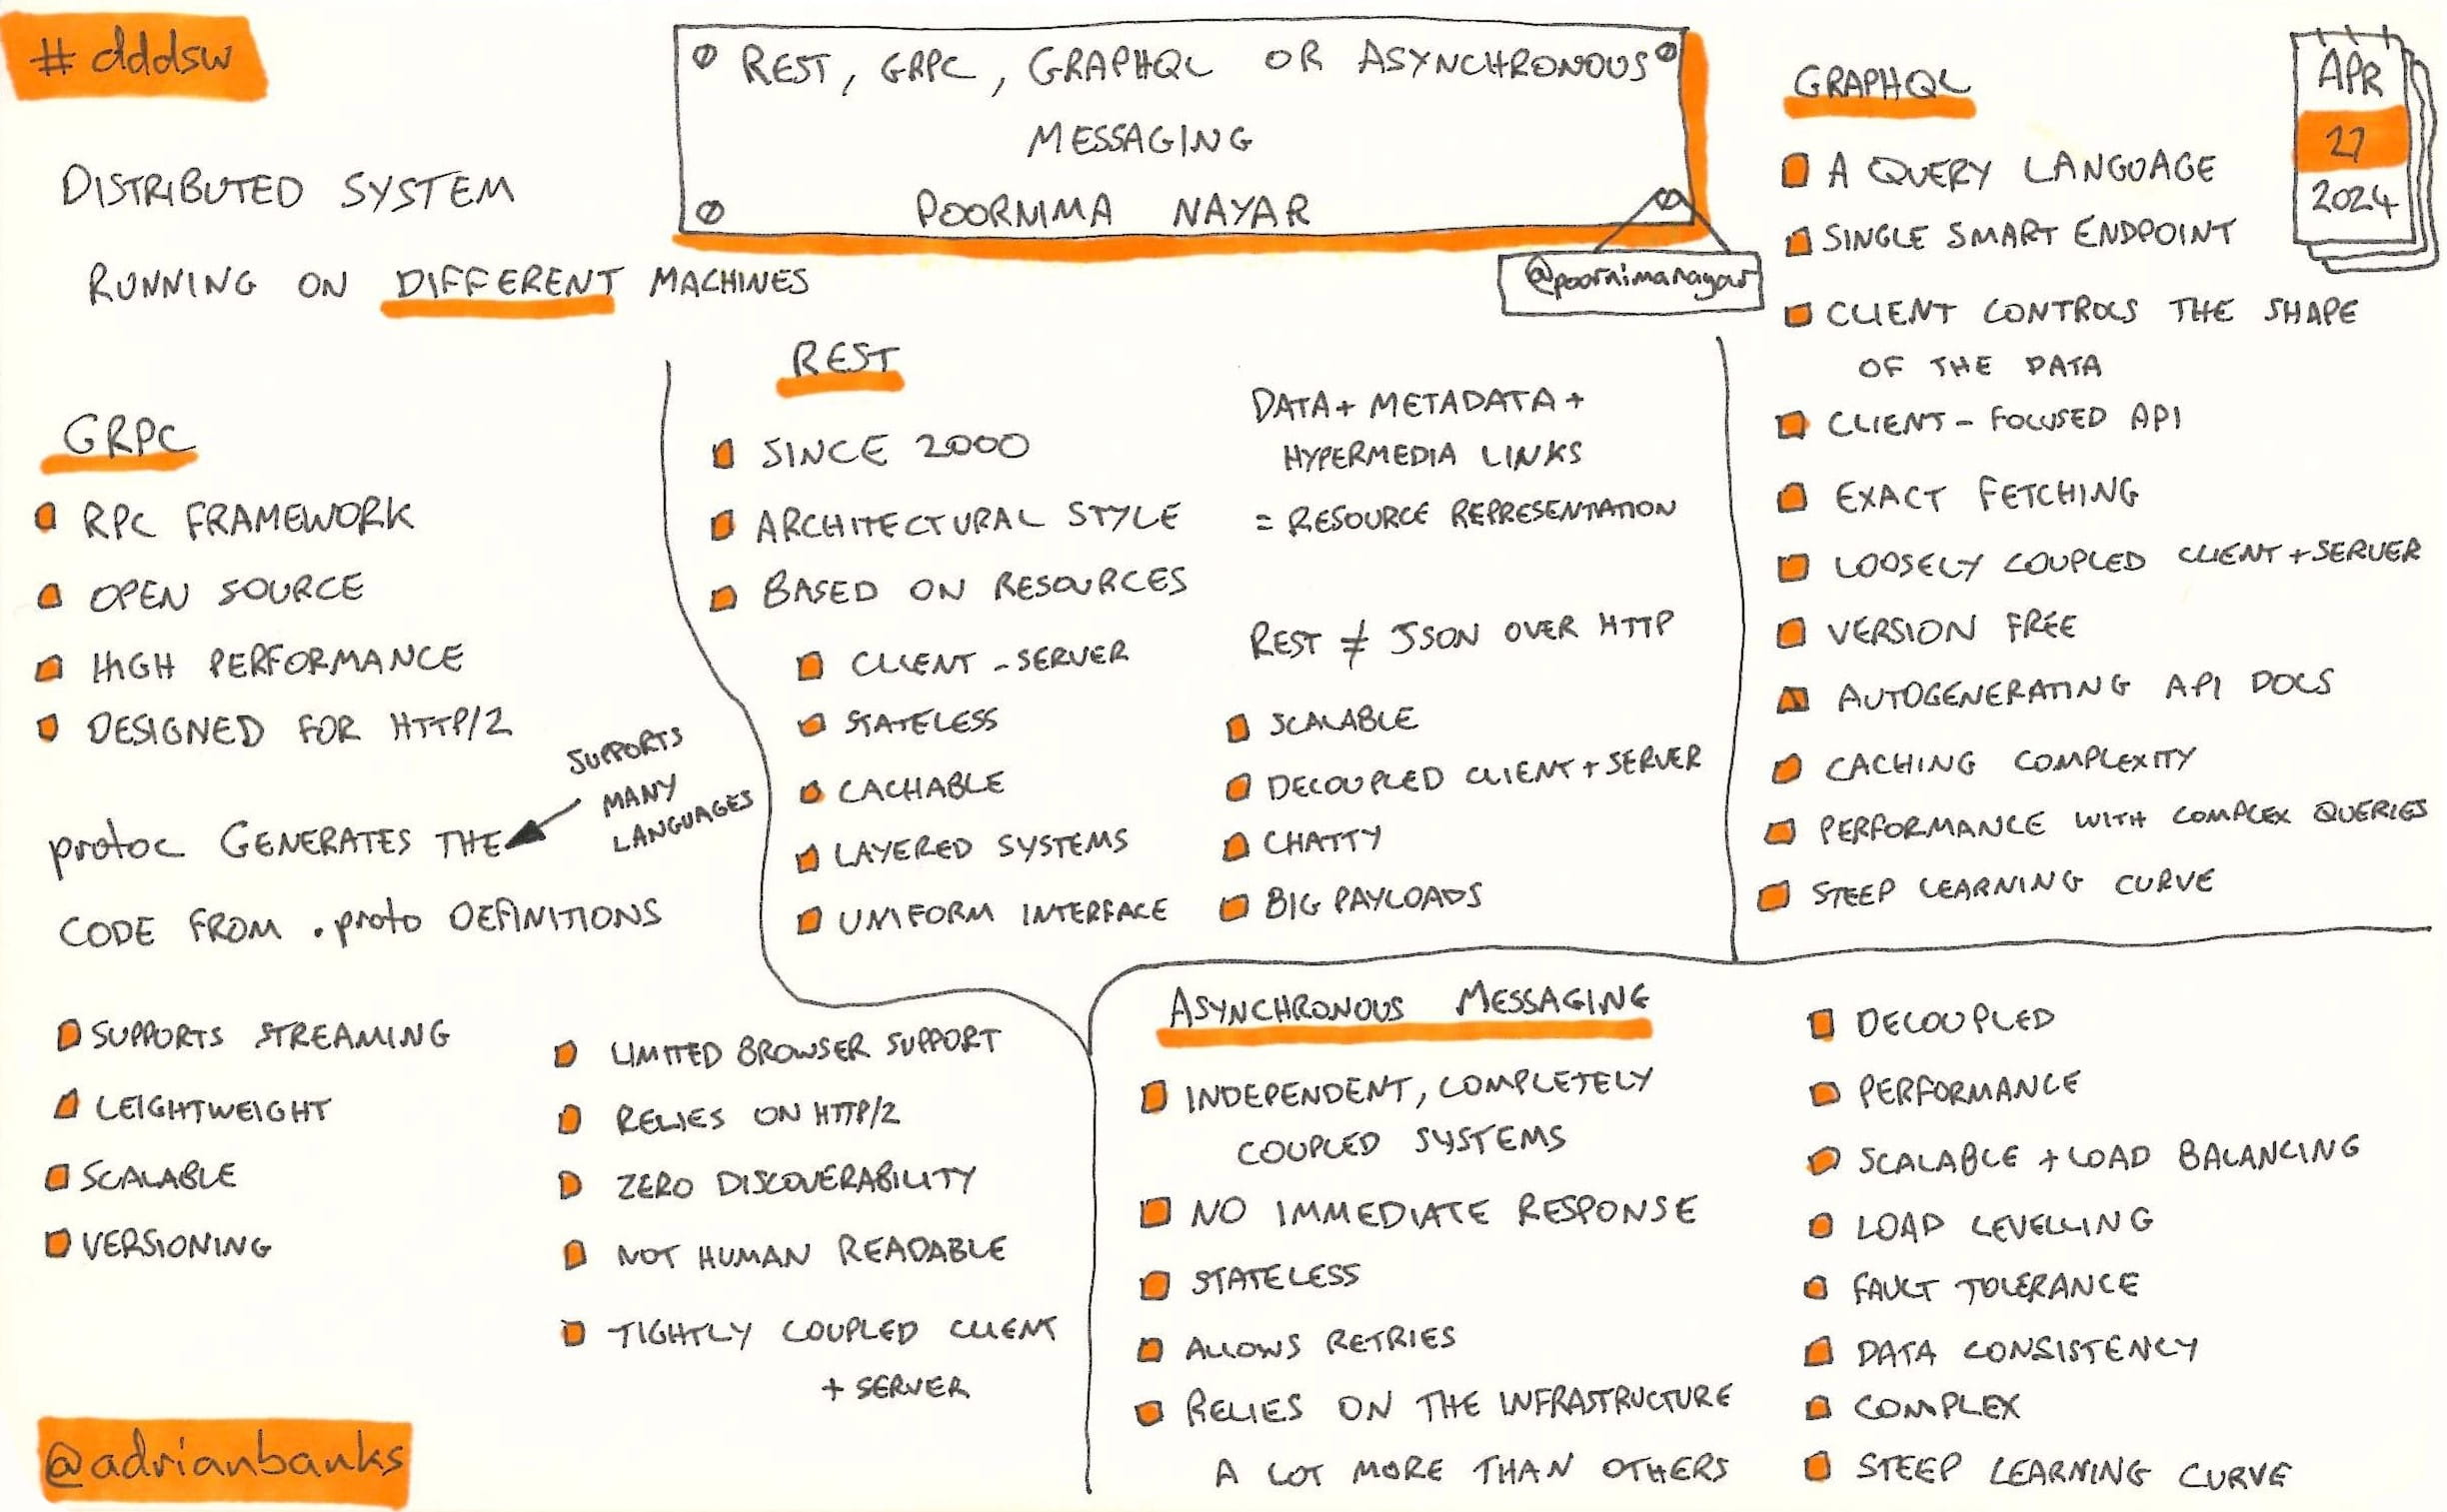 #dddsw
REST, GRPC, GRAPHQL OR ASYNCHRONOUS
MESSAGING
POORNIMA NAYAR
@poornimanayar
APR
27
2024
DISTRIBUTED SYSTEM
RUNNING ON DIFFERENT MACHINES
GRPC
RPC FRAMEWORK
OPEN SOURCE
HIGH PERFORMANCE
DESIGNED FOR HTTP/2
SUPPORTS
MANY
LANGUAGES
protoc GENERATES THE
CODE FROM .proto DEFINITIONS
SUPPORTS STREAMING
LEIGHTWEIGHT
SCALABLE
VERSIONING
LIMITED BROWSER SUPPORT
RELIES ON HTTP/2
ZERO DISCOVERABILITY
NOT HUMAN READABLE
TIGHTLY COUPLED CLIENT
+ SERVER
REST
SINCE 2000
ARCHITECTURAL STYLE
BASED ON RESOURCES
CLIENT-SERVER
STATELESS
CACHABLE
LAYERED SYSTEMS
UNIFORM INTERFACE
DATA + METADATA +
HYPERMEDIA LINKS
= RESOURCE REPRESENTATION
REST ≠ JSON OVER HTTP
SCALABLE
DECOUPLED CLIENT + SERVER
CHATTY
BIG PAYLOADS
GRAPHQL
A QUERY LANGUAGE
SINGLE SMART ENDPOINT
CLIENT CONTROLS THE SHAPE
OF THE DATA
CLIENT-FOCUSED API
EXACT FETCHING
LOOSELY COUPLED CLIENT + SERVER
VERSION FREE
AUTOGENERATING API DOCS
CACHING COMPLEXITY
PERFORMANCE WITH COMPLEX QUERIES
STEEP LEARNING CURVE
ASYNCHRONOUS MESSAGING
INDEPENDENT, COMPLETELY
COUPLED SYSTEMS
NO IMMEDIATE RESPONSE
STATELESS
ALLOWS RETRIES
RELIES ON THE INFRASTRUCTURE
A LOT MORE THAN OTHERS
DECOUPLED
PERFORMANCE
SCALABLE + LOAD BALANCING
LOAD LEVELLING
FAULT TOLERANCE
DATA CONSISTENCY
COMPLEX
STEEP LEARNING CURVE
@adrianbanks